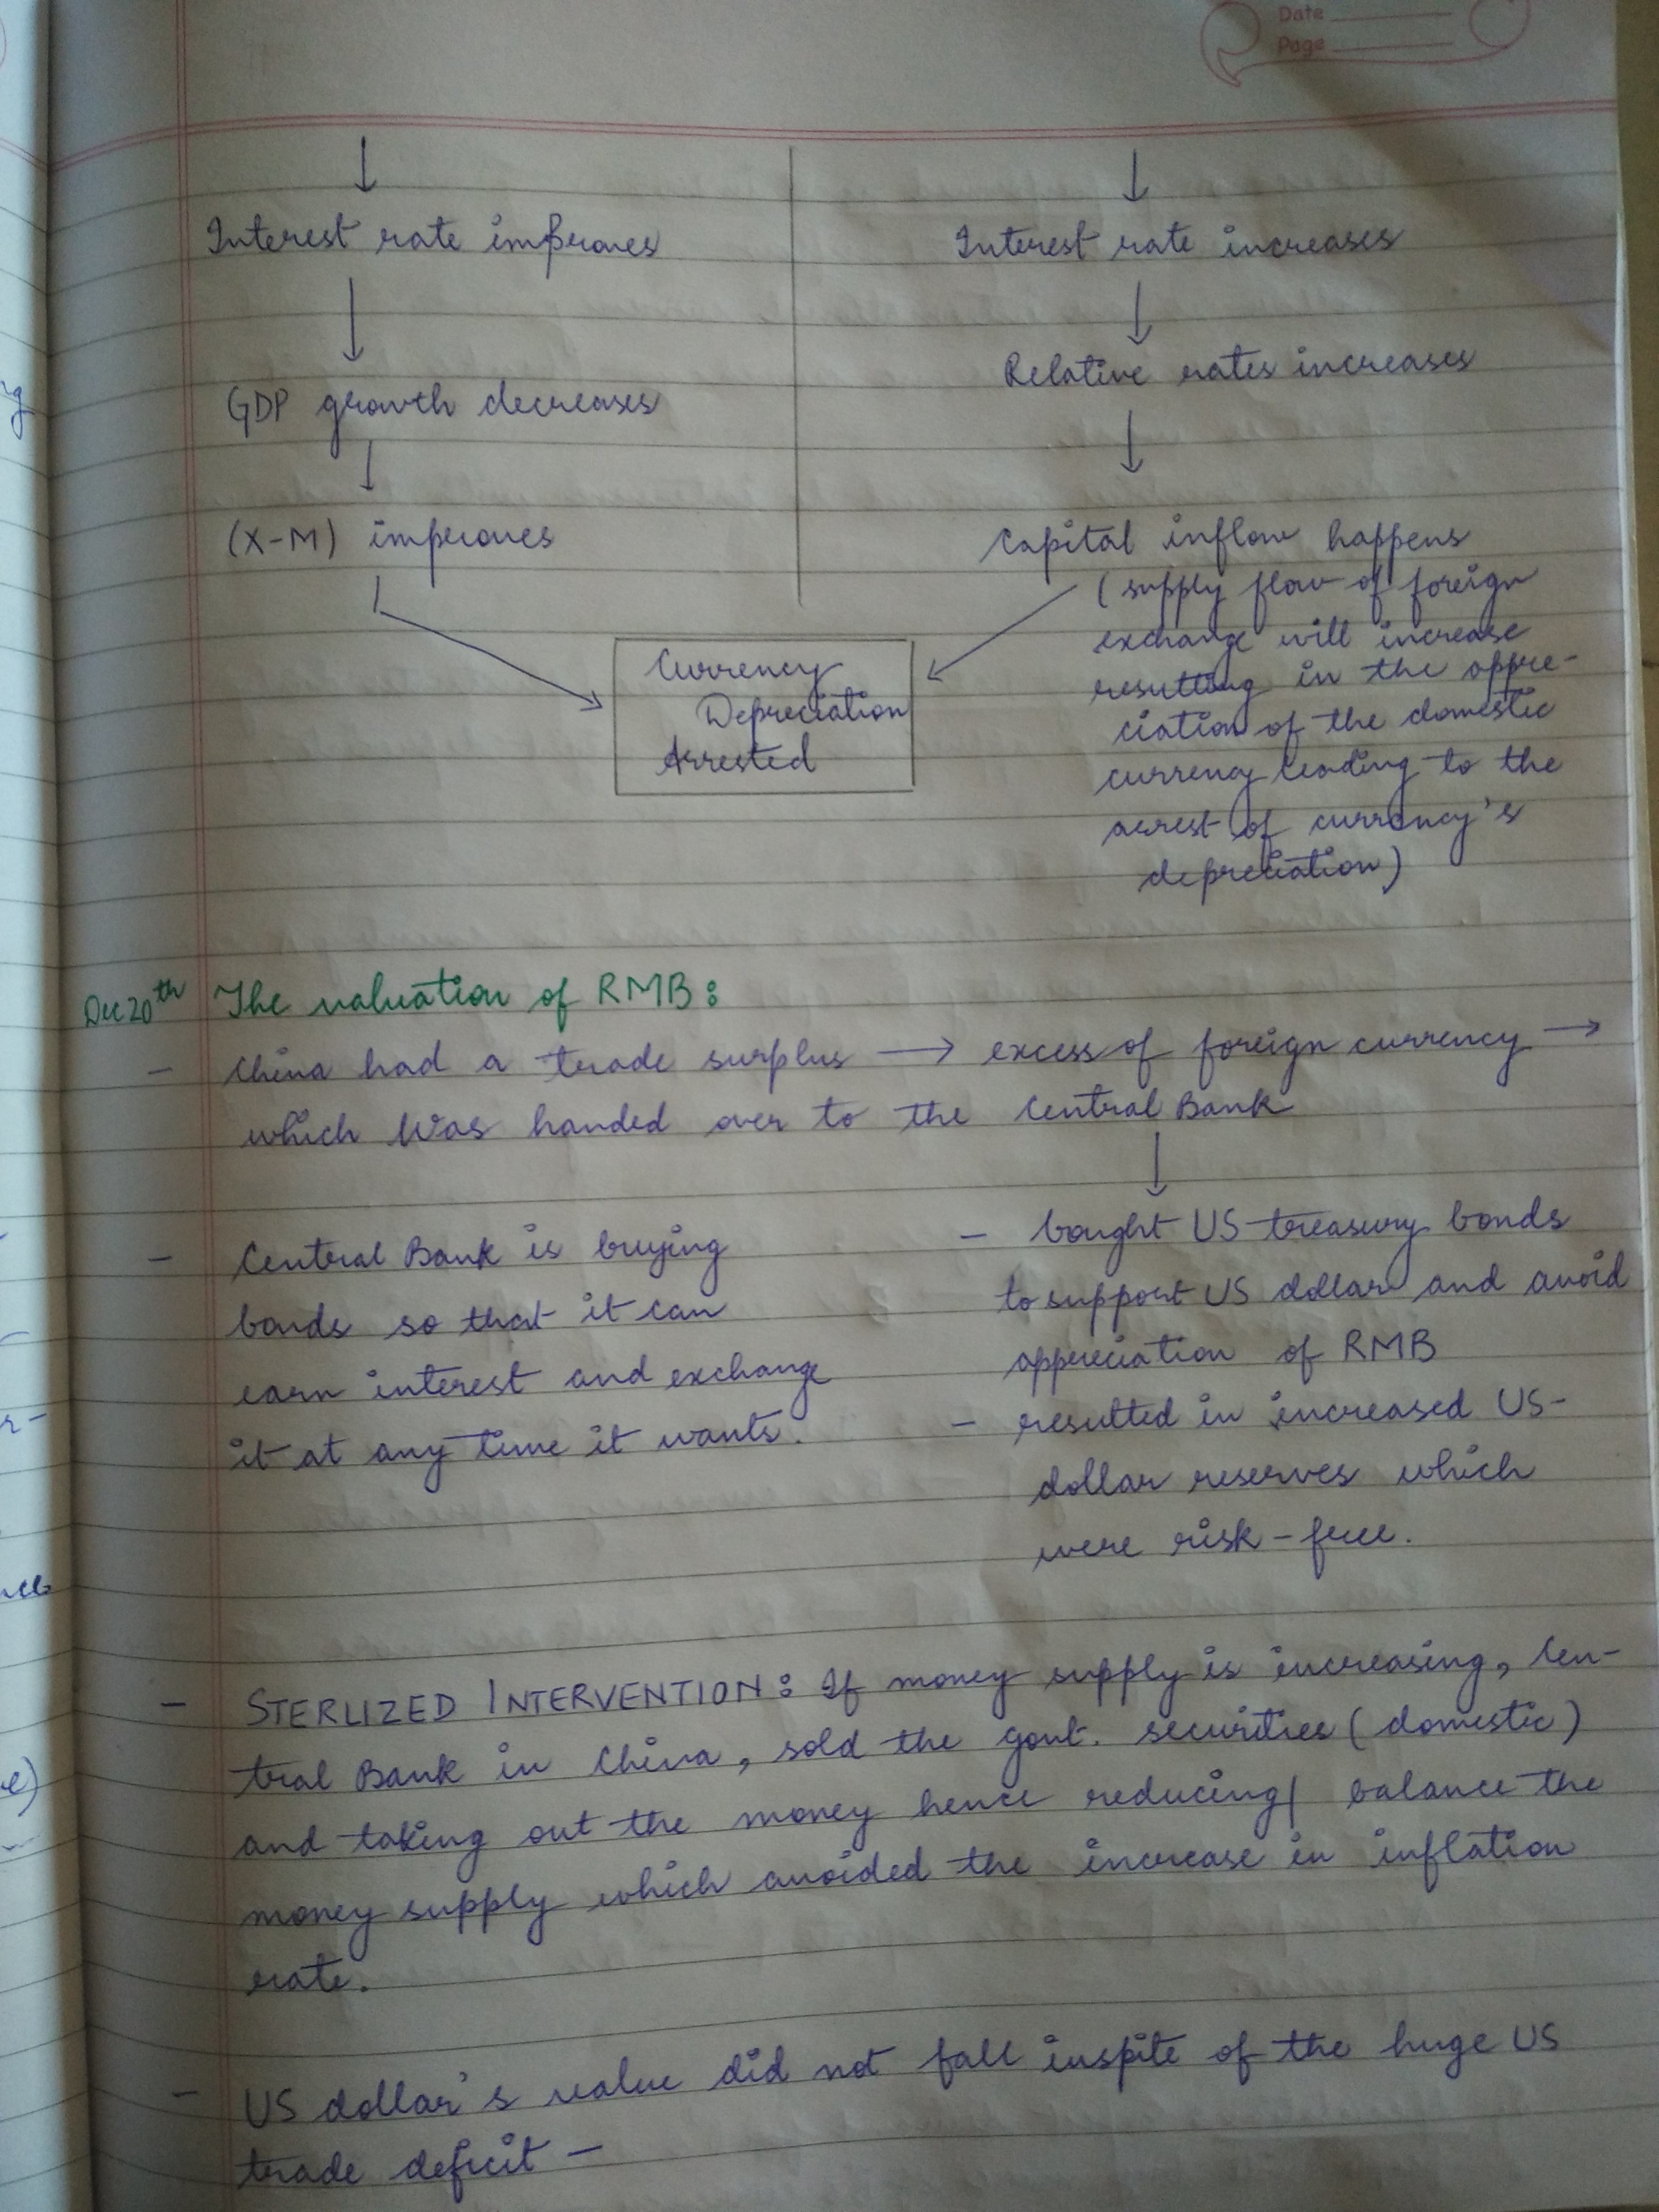 Date
Page
Interest rate improves
GDP growth decreases
(X-M) improves
Interest rate increases
Relative rates increases
Capital inflow happens
(supply flow of foreign
exchange will increase
resulting in the appre-
ciation of the domestic
currency leading to the
arrest of currency's
depreciation)
Currency
Depreciation
Arrested
Dec 20th The valuation of RMB:
- China had a trade surplus → excess of foreign currency →
which was handed over to the Central Bank
- Central Bank is buying
bonds so that it can
earn interest and exchange
it at any time it wants.
- bought US treasury bonds
to support US dollar and avoid
appreciation of RMB
- resulted in increased US-
dollar reserves which
were risk-free.
- STERLIZED INTERVENTION: If money supply is increasing, Cen-
tral Bank in China, sold the govt. securities (domestic)
and taking out the money hence reducing/ balance the
money supply which avoided the increase in inflation
rate.
- US dollar's value did not fall inspite of the huge US
trade deficit -